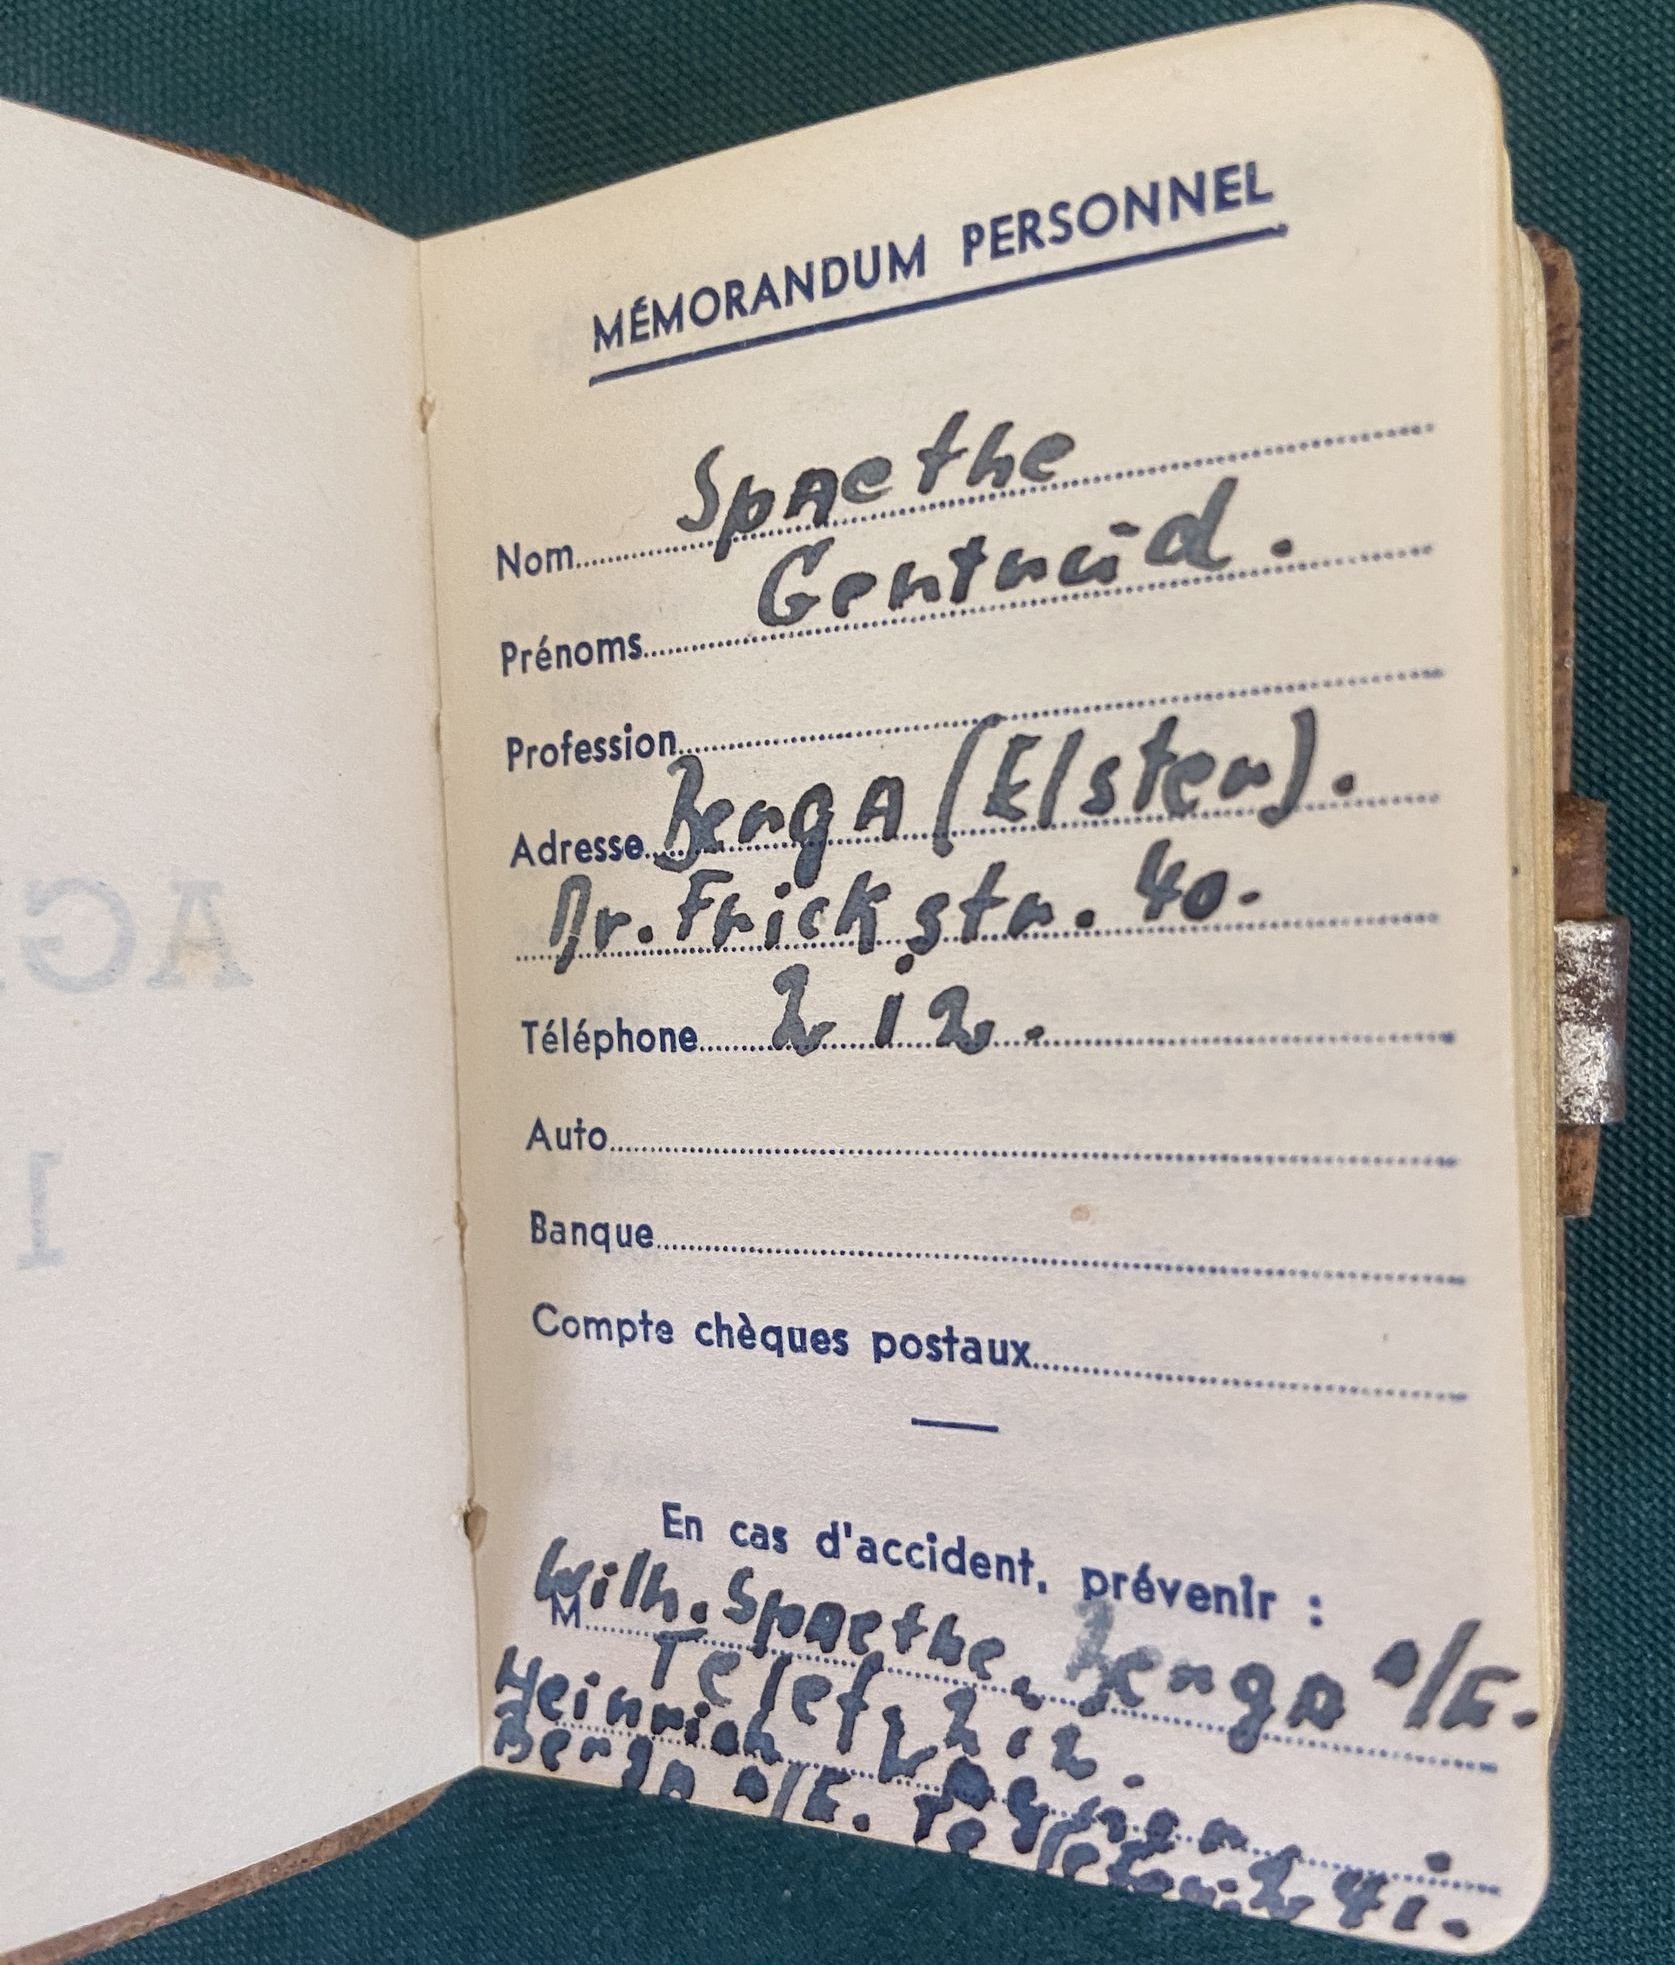 MÉMORANDUM PERSONNEL
Nom Spaethe
Prénoms Gertrud.
Profession
Adresse Berga (Elster).
Dr. Frickstr. 40.
Téléphone 212.
Auto
Banque
Compte chèques postaux
En cas d'accident, prévenir :
M Wilh. Spaethe, Berga a/E.
Telef. 212.
Heinrich Wagner
Berga a/E. Telefon: 241.
AG
1